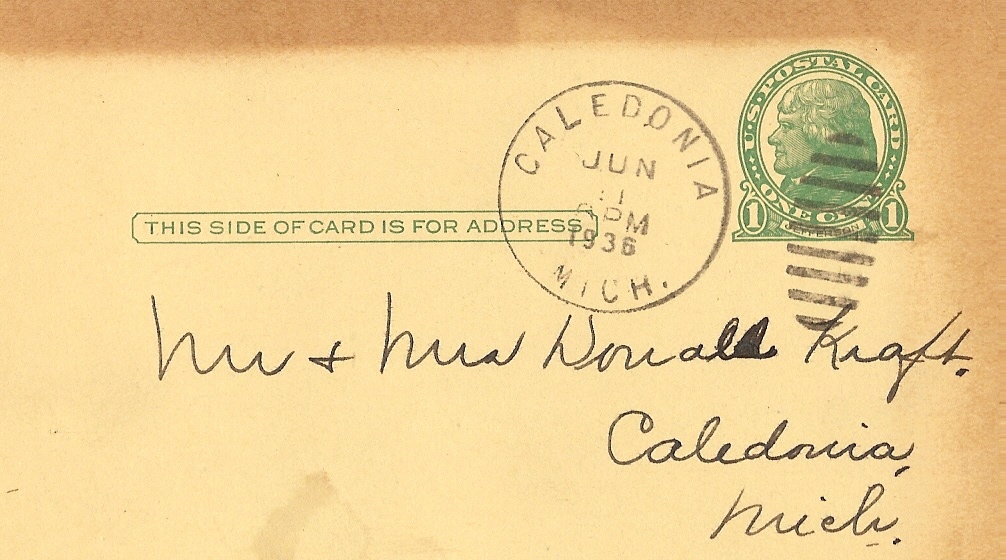 U.S. POSTAL CARD
1 ONE CENT 1
JEFFERSON
CALEDONIA
JUN
PM
1936
MICH.
THIS SIDE OF CARD IS FOR ADDRESS
Mr & Mrs Donald Kraft.
Caledonia,
Mich.